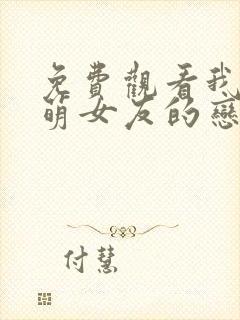 免費觀看我
萌女友的戀
付慧